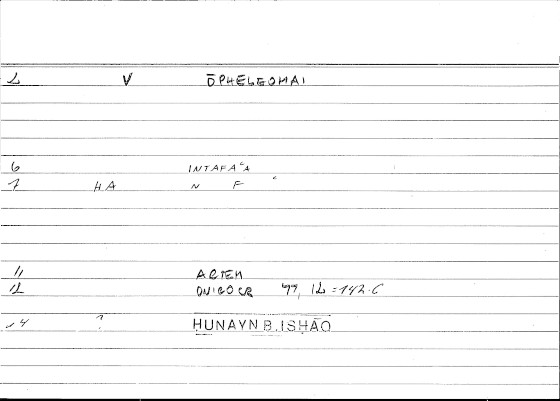 V ŌPHELEOMAI
6 INTAFAʿA
7 HA N F ʿ
11 ARTEM
12 ONIROCR 77, 12 = 142.6
14 ? ḤUNAYN B. ISḤĀQ